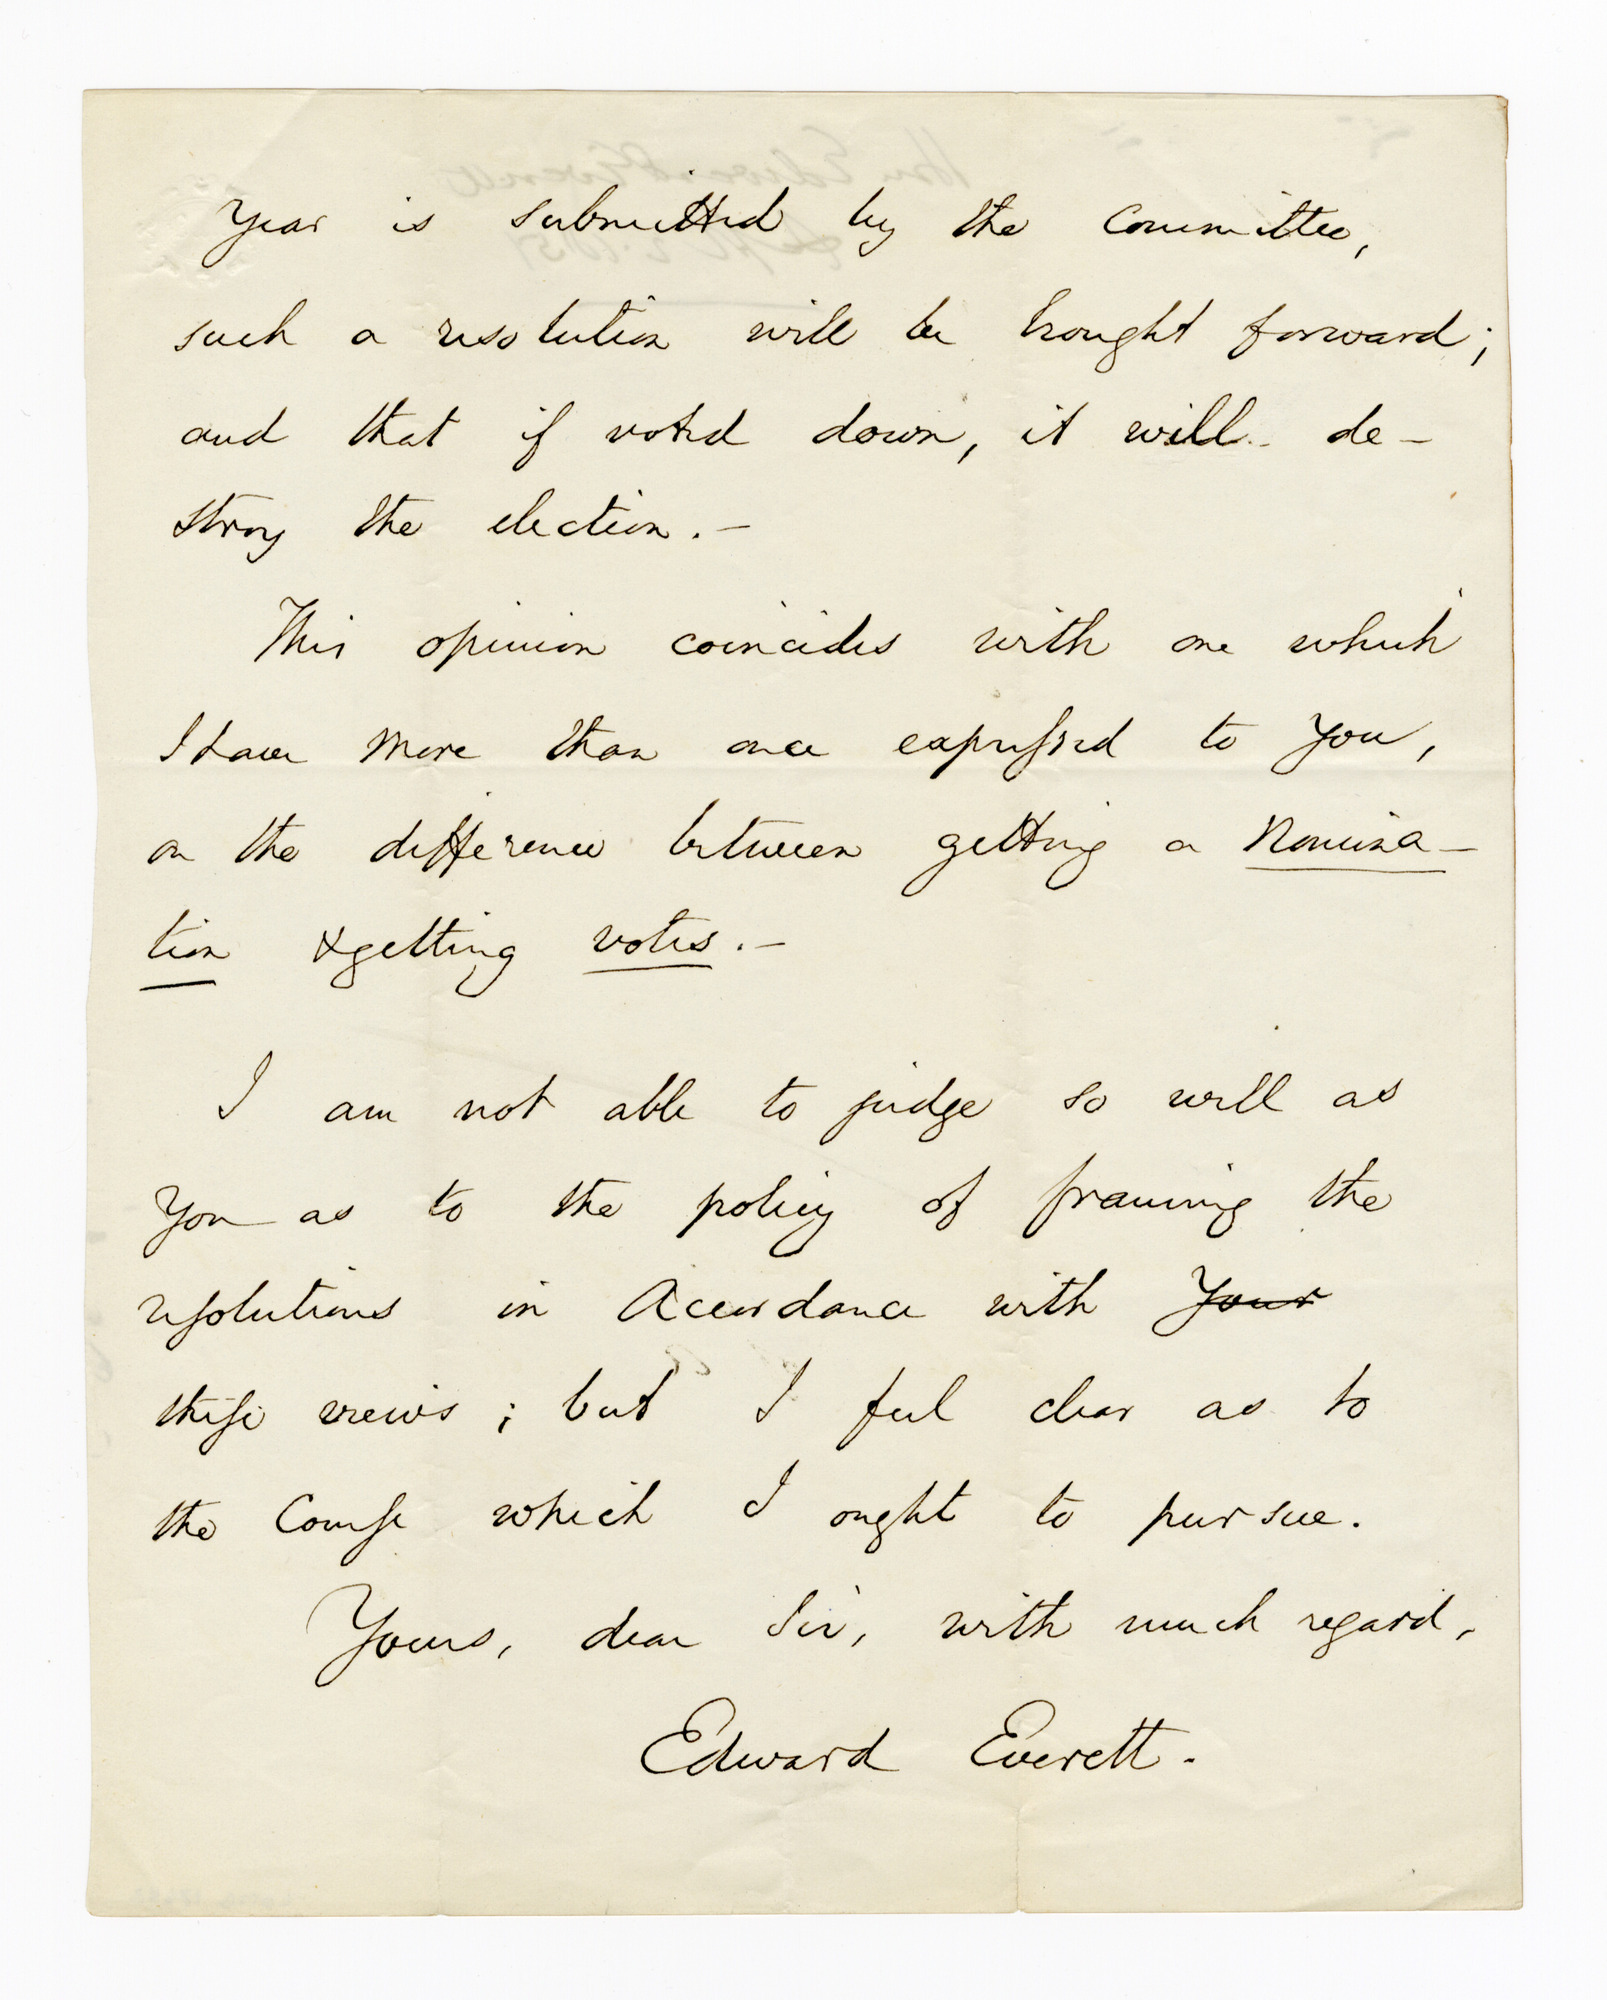 Year is submitted by the Committee,
such a resolution will be brought forward;
and that if voted down, it will de-
stroy the election.-
This opinion coincides with one which
I have more than once expressed to you,
on the difference between getting a Nomina-
tion & getting votes.-
I am not able to judge so well as
you as to the policy of framing the
resolutions in accordance with Your
these views; but I feel clear as to
the Course which I ought to pursue.
Yours, dear Sir, with much regard,
Edward Everett.